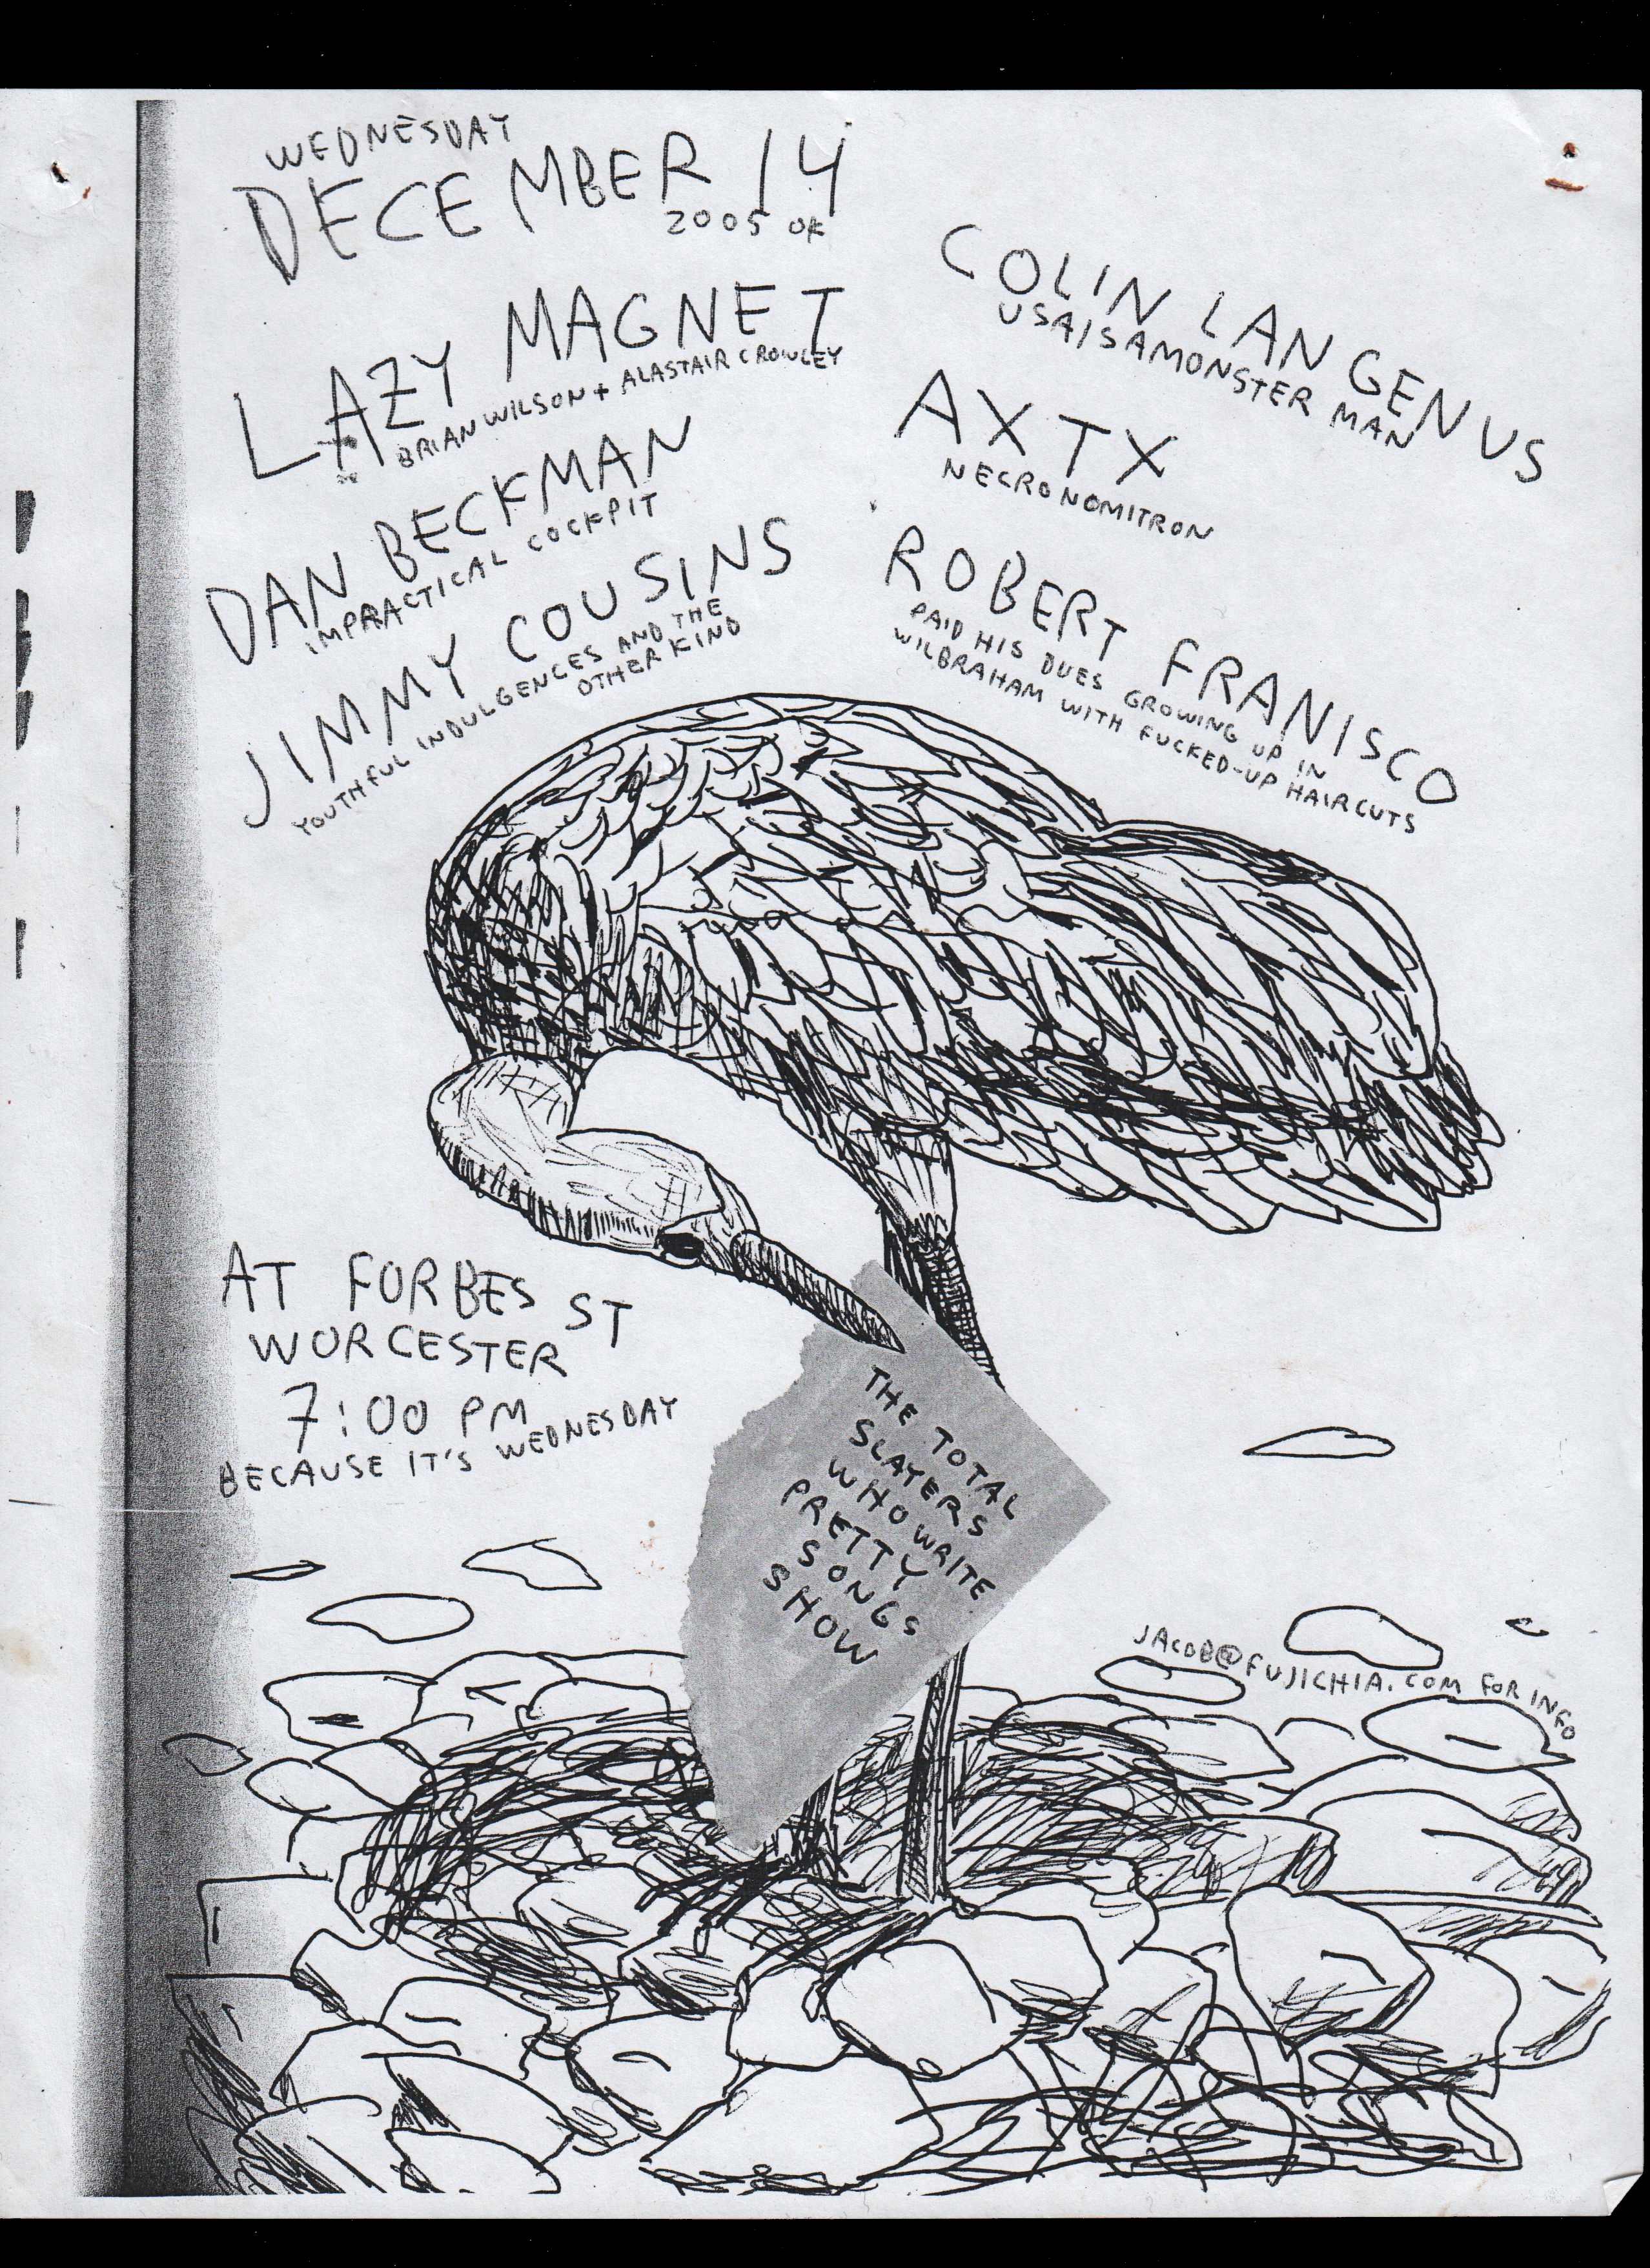 WEDNESDAY
DECEMBER 14
2005 OK
LAZY MAGNET
BRIAN WILSON + ALASTAIR CROWLEY
DAN BECKMAN
IMPRACTICAL COCKPIT
JIMMY COUSINS
YOUTHFUL INDULGENCES AND THE
OTHER KIND
COLIN LANGENUS
USAISAMONSTER MAN
AXTX
NECRONOMITRON
ROBERT FRANISCO
PAID HIS DUES GROWING UP IN
WILBRAHAM WITH FUCKED-UP HAIRCUTS
AT FORBES ST
WORCESTER
7:00 PM
BECAUSE IT'S WEDNESDAY
THE TOTAL
SLAYERS
WHO WRITE
PRETTY
SONGS
SHOW
JACOB@FUJICHIA.COM FOR INFO